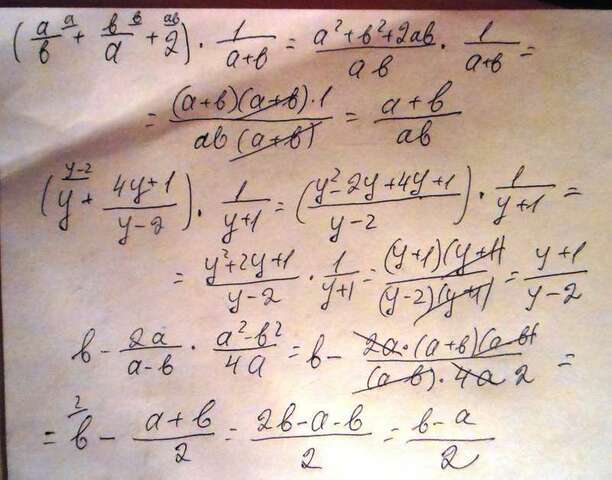 (a/b^a + b/a^b + 2^ab) · 1/(a+b) = (a²+b²+2ab)/(ab) · 1/(a+b) =
= ((a+b)(a+b)·1)/(ab(a+b)) = (a+b)/(ab)
(y^(y-2) + (4y+1)/(y-2)) · 1/(y+1) = ((y²-2y+4y+1)/(y-2)) · 1/(y+1) =
= (y²+2y+1)/(y-2) · 1/(y+1) = ((y+1)(y+1))/((y-2)(y+1)) = (y+1)/(y-2)
b - 2a/(a-b) · (a²-b²)/(4a) = b - (2a·(a+b)(a-b))/((a-b)·4a 2) =
= b^2 - (a+b)/2 = (2b-a-b)/2 = (b-a)/2